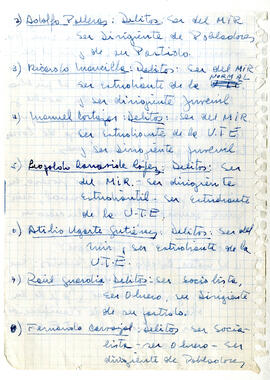 2) Adolfo Palleras: Delitos: Ser del MIR
Ser Dirigente de Pobladores
y de su Partido.
3) Ricardo Mancilla: Delitos: Ser del MIR
NORMAL
ser estudiante de la
y ser dirigiente Juvenil
4) Manuel Cortez: Delitos: Ser del MIR
Ser Estudiante de la U.T.E.
y ser Dirigiente Juvenil
5) Leopoldo López: Delitos: Ser
del MIR. - Ser dirigiente
Estudiantil - Ser Estudiante
de la U.T.E.
6) Atilio Ugarte Gutiérrez: Delitos: Ser del
mir, ser Estudiante de la
U.T.E.
7) Raúl Guardia Delitos: Ser Socialista,
Ser Obrero, ser Dirigente
de su partido.
8) Fernando Carvajal: Delitos: Ser Socia-
lista - ser Obrero - Ser
dirigiente de Pobladores,